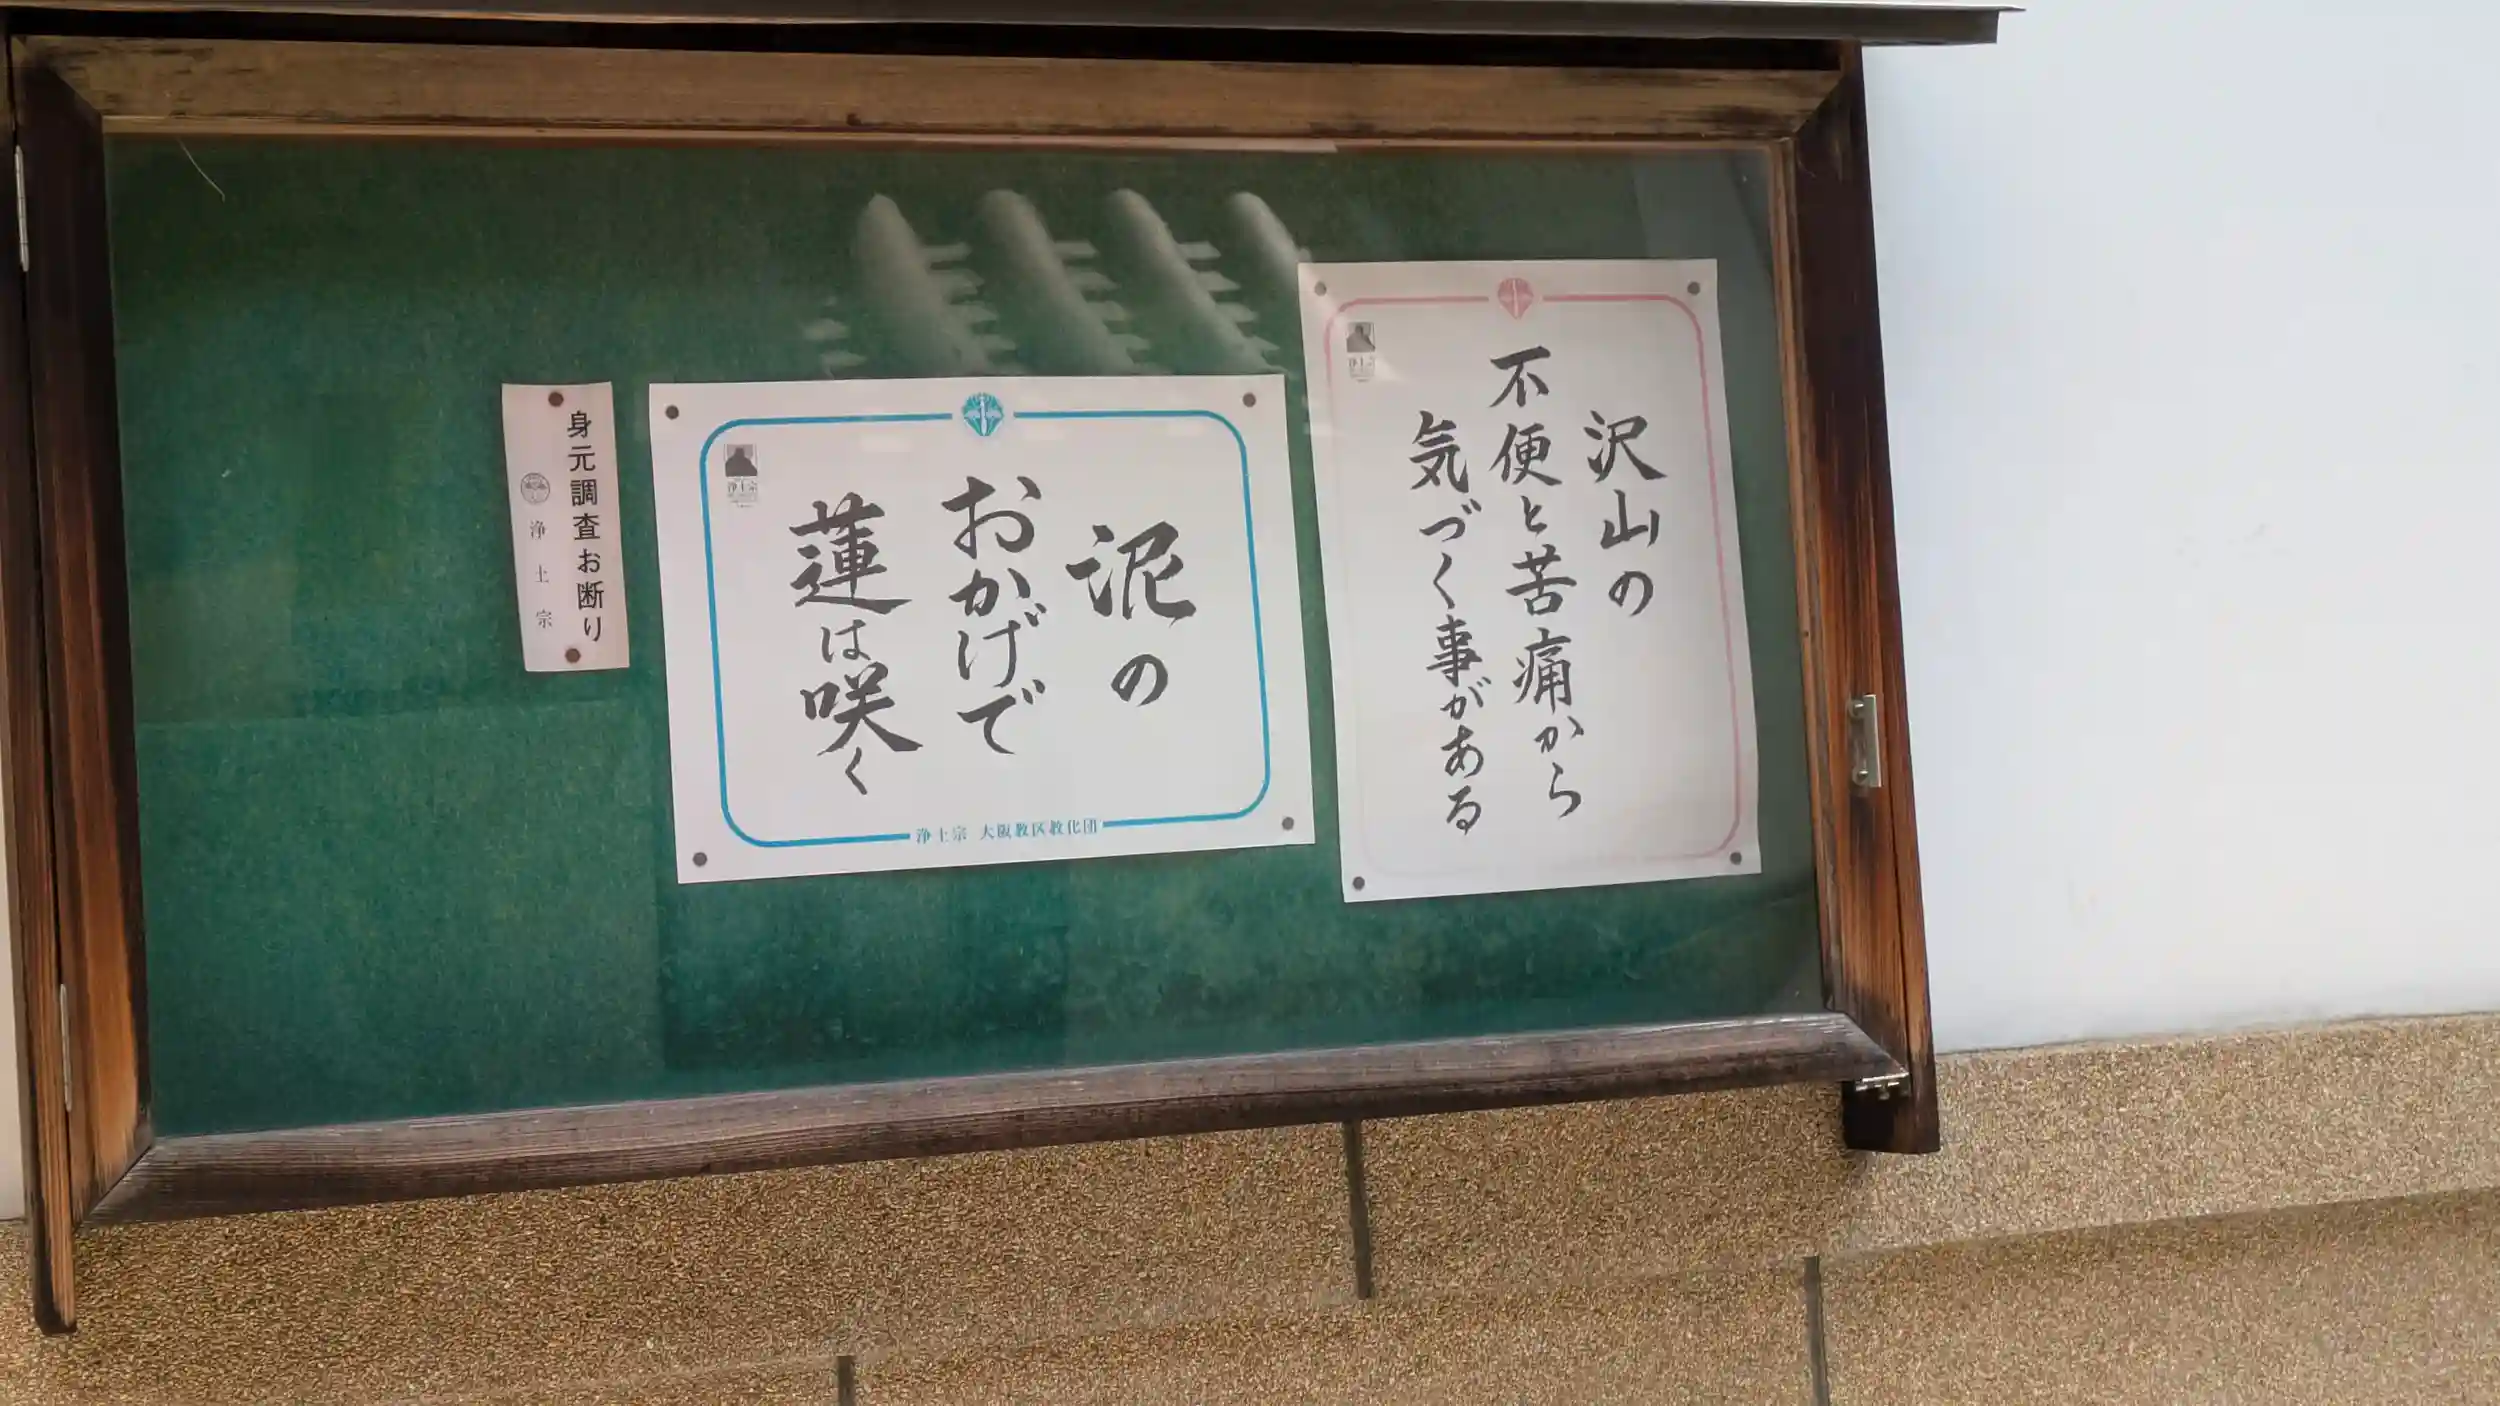 沢山の
不便と苦痛から
気づく事がある
泥の
おかげで
蓮は咲く
浄土宗
浄土宗 大阪教区教化団
身元調査お断り
浄土宗